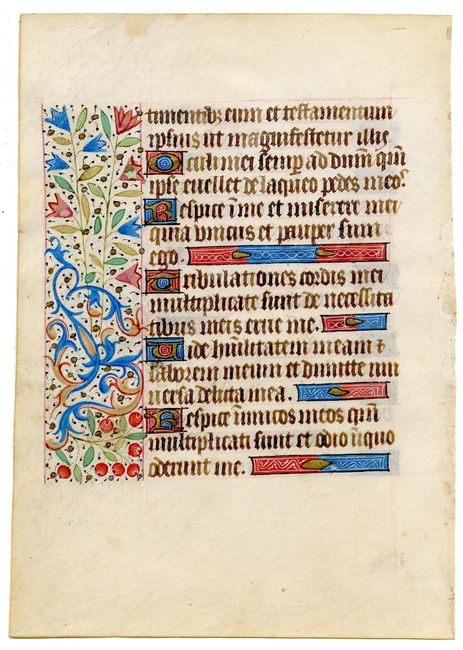 timentibꝫ eum et testamentum
ipsius ut magnifestetur illis
Oculi mei semꝑ ad dn̄m qm̄
ipse euellet de laqueo pedes meos.
Respice ī me et miserere mei
quia vnicus et pauper sum
ego.
Tribulationes cordis mei
multiplicate sunt de necessita
tibus meis erue me.
Vide hūilitatem meam ⁊
laborem meum et dimitte uni
uersa delicta mea.
Respice inīicos meos qm̄
multiplicati sunt et odio īiquo
oderunt me.